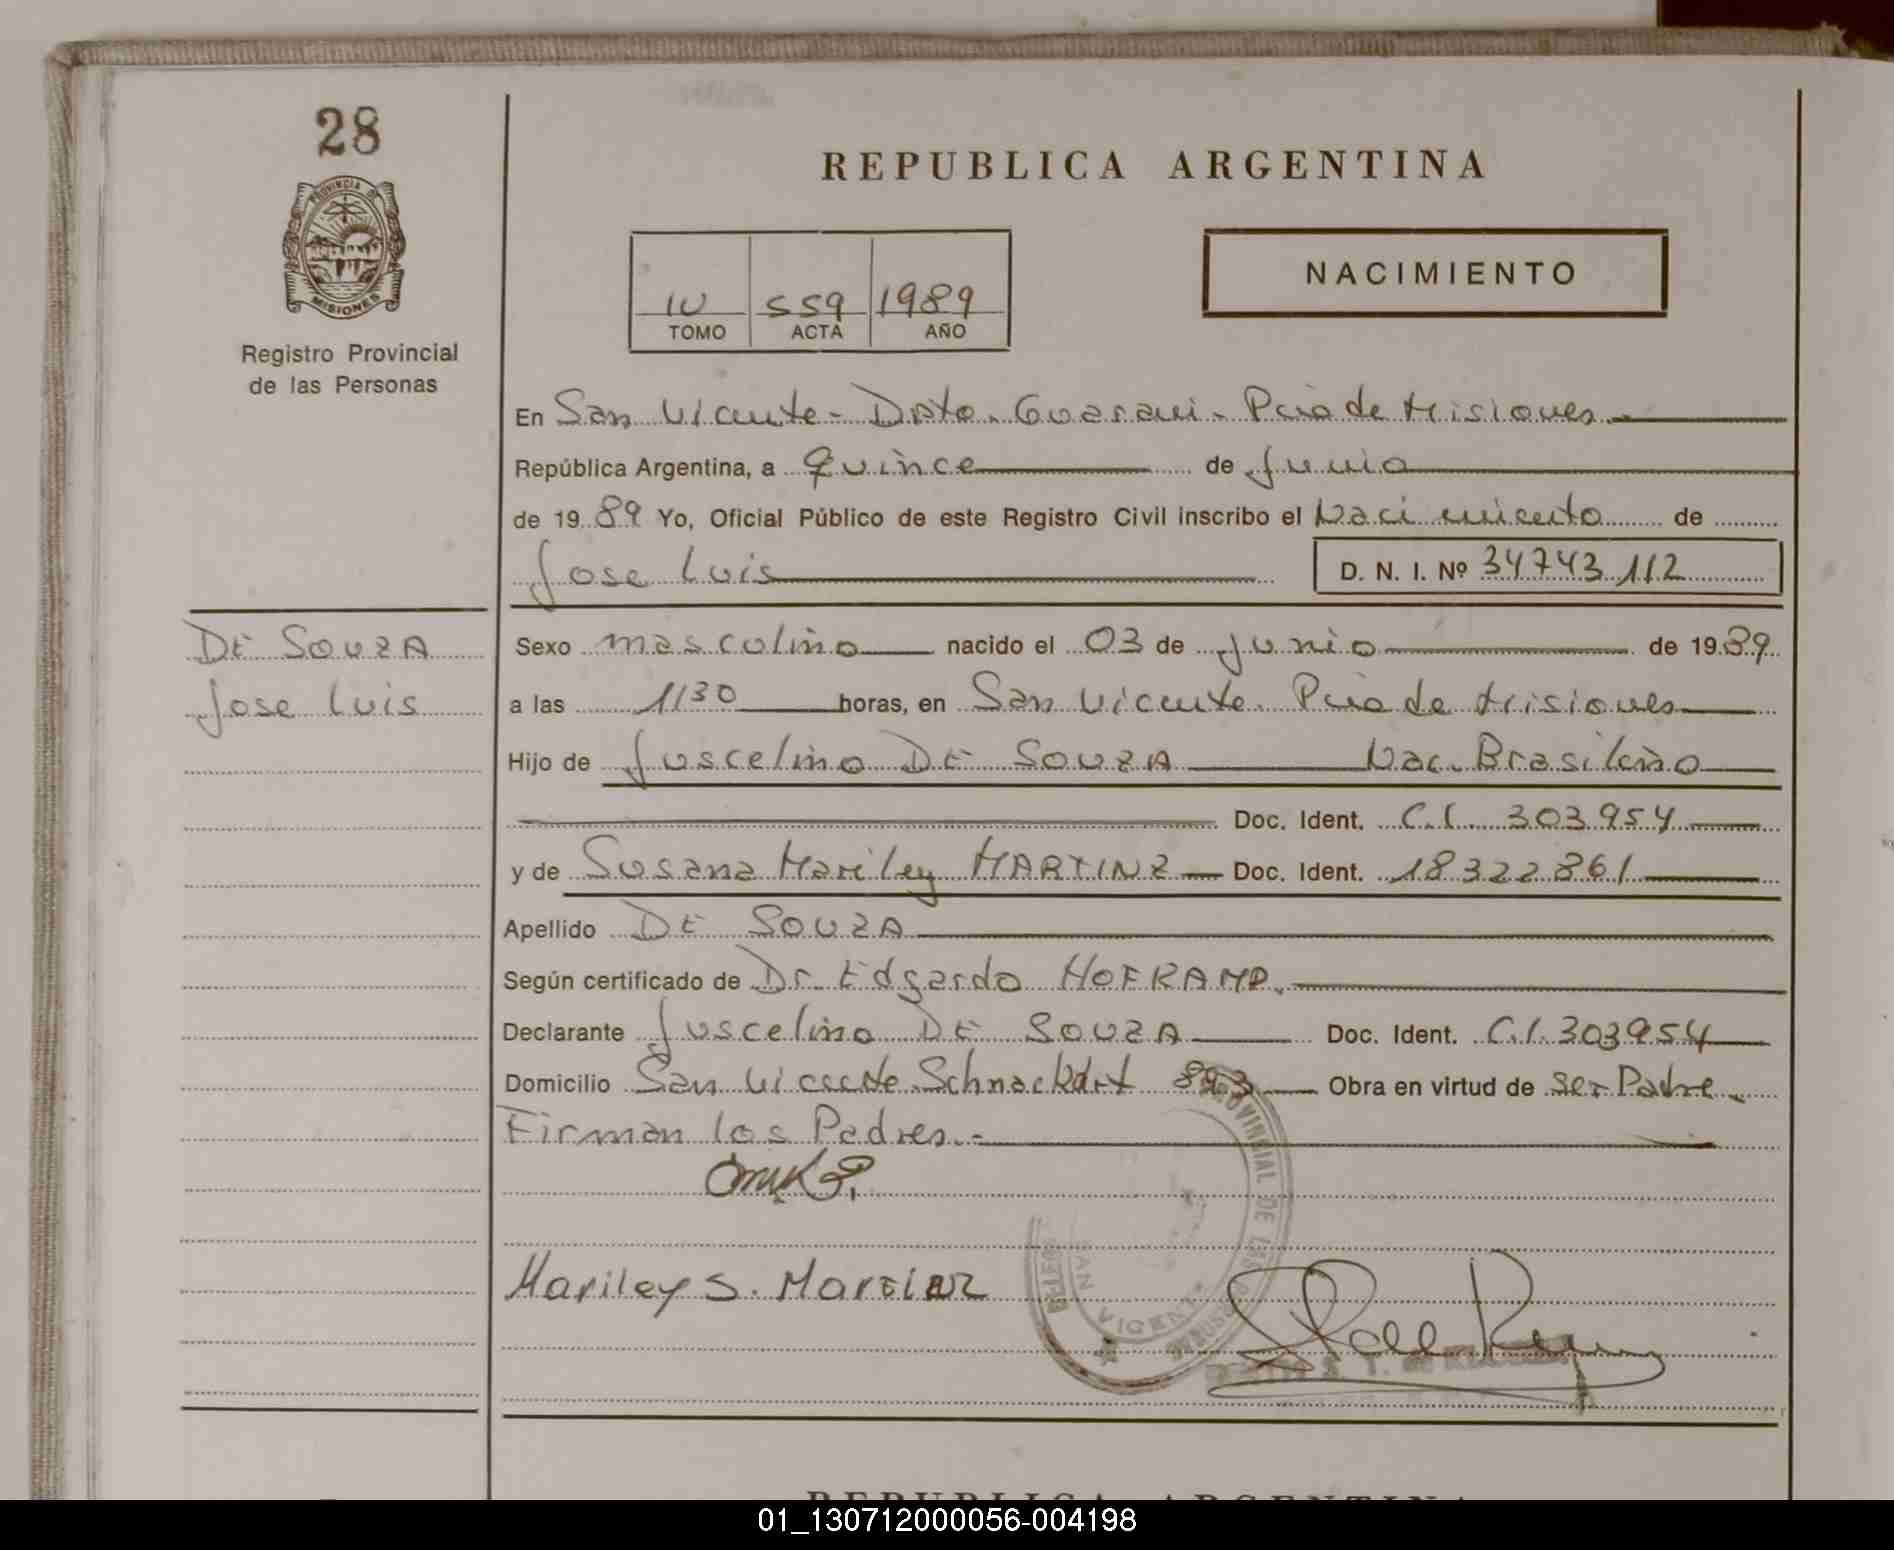 28
PROVINCIA D
MISIONES
Registro Provincial
de las Personas
REPUBLICA ARGENTINA
NACIMIENTO
IV 559 1989
TOMO ACTA AÑO
En San Vicente - Dpto. Guarani - Pcia de Misiones.
República Argentina, a quince de Junio
de 1989 Yo, Oficial Público de este Registro Civil inscribo el Nacimiento de
Jose Luis D. N. I. Nº 34743112
DE SOUZA
Jose Luis
Sexo masculino nacido el 03 de junio de 1989
a las 1130 horas, en San Vicente Pcia de Misiones
Hijo de Juscelino DE SOUZA Nac. Brasileño
Doc. Ident. C.I. 303954
y de Susana Mariley MARTINZ Doc. Ident. 18322861
Apellido DE SOUZA
Según certificado de Dr. Edgardo HOFKAMP.
Declarante Juscelino DE SOUZA Doc. Ident. C.I. 303954
Domicilio San Vicente Schnackdrt Obra en virtud de ser Padre.
Firman los Padres.-
PROVINCIAL DE LAS
SAN VICENTE
Mariley S. Martinz
REPUBLICA ARGENTINA
01_130712000056-004198